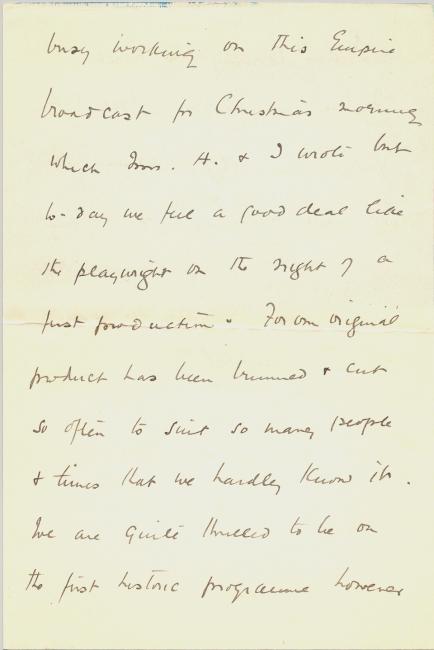 busy working on this Empire
broadcast for Christmas morning
which Mrs. H. & I wrote but
to-day we feel a good deal like
the playwright on the night of a
first production. For our original
product has been trimmed & cut
so often to suit so many people
& times that we hardly know it.
We are quite thrilled to be on
the first historic programme however